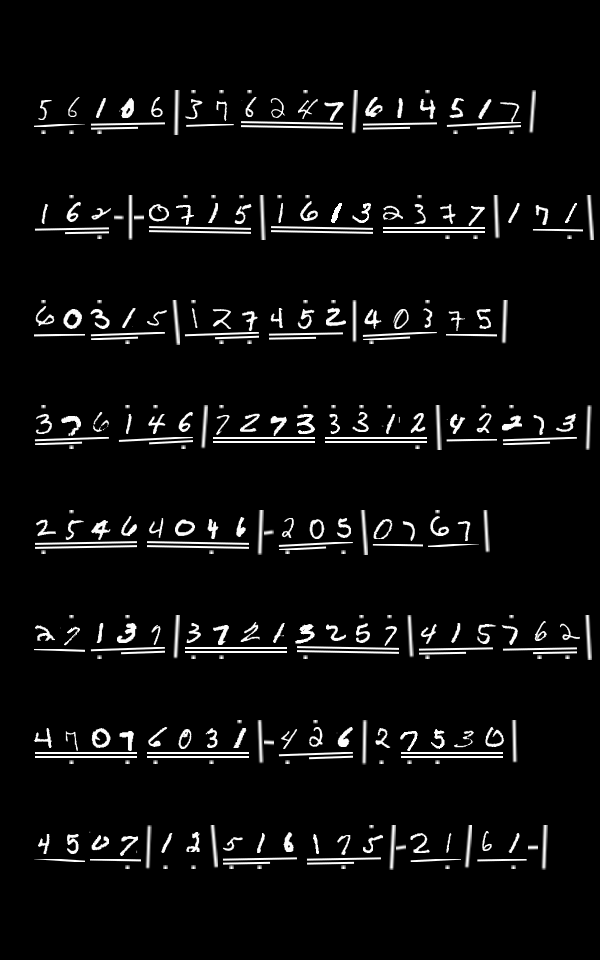 5 6 1 0 6 | 3 7 6 2 4 7 | 6 1 4 5 1 7 |
1 6 2 - | - 0 7 1 5 | 1 6 1 3 2 3 7 7 | 1 7 1 |
6 0 3 1 5 | 1 2 7 4 5 2 | 4 0 3 7 5 |
3 7 6 1 4 6 | 7 2 7 3 3 3 1 2 | 4 2 2 7 3 |
2 5 4 6 4 0 4 6 | - 2 0 5 | 0 7 6 7 |
2 7 1 3 7 | 3 7 2 1 3 2 5 7 | 4 1 5 7 6 2 |
4 7 0 7 6 0 3 1 | - 4 2 6 | 2 7 5 3 0 |
4 5 0 7 | 1 2 | 5 1 6 1 7 5 | - 2 1 | 6 1 - |